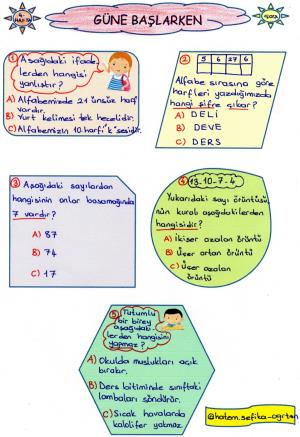 4. HAFTA
GÜNE BAŞLARKEN
1 Aşağıdaki ifade-
lerden hangisi
yanlıştır?
A) Alfabemizde 21 ünsüz harf
vardır.
B) Yurt kelimesi tek hecelidir.
C) Alfabemizin 10. harfi "k" sesidir.
2
5 6 27 6
Alfabe sırasına göre
harfleri yazdığımızda
hangi şifre çıkar?
A) DELİ
B) DEVE
C) DERS
3 Aşağıdaki sayılardan
hangisinin onlar basamağında
7 vardır?
A) 87
B) 74
C) 17
4 13-10-7-4
Yukarıdaki sayı örüntüsü-
nün kuralı aşağıdakilerden
hangisidir?
A) İkişer azalan örüntü
B) Üçer artan örüntü
C) Üçer azalan
örüntü
5 Tutumlu
bir birey
aşağıdaki-
lerden hangisini
yapmaz?
A) Okulda muslukları açık
bırakır.
B) Ders bitiminde sınıftaki
lambaları söndürür.
C) Sıcak havalarda
kalolifer yakmaz.
@hatem.sefika_ogrtmn